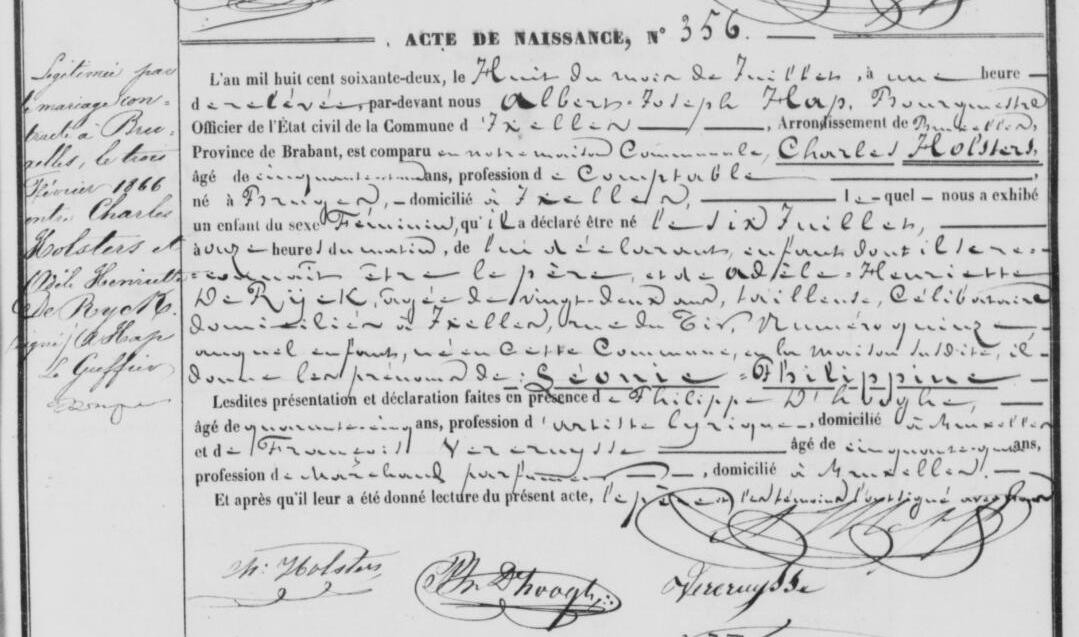 ACTE DE NAISSANCE, N° 356.
L'an mil huit cent soixante-deux, le Huit du mois de Juillet, à une heure
de relévée, par-devant nous Albert-Joseph Hap, Bourgmestre
Officier de l'État civil de la Commune d'Ixelles, Arrondissement de Bruxelles,
Province de Brabant, est comparu en notre maison Communale, Charles Holsters,
âgé de cinquante ans, profession de Comptable,
né à Bruges, domicilié à Ixelles, le-quel nous a exhibé
un enfant du sexe Féminin, qu'il a déclaré être né le six Juillet,
à onze heures du matin, de lui déclarant, enfant dont il se re-
=connoît être le père, et de Adèle-Henriette
De Rijck, agée de vingt-deux ans, tailleuse, Célibataire
domiciliée à Ixelles, rue du Tir, Numéro quinze,
auquel enfant, né en cette Commune, en la maison susdite, il-
donne les prénoms de: Léonie=Philippine
Lesdites présentation et déclaration faites en présence de Philippe D'hooghe,
âgé de quarante-cinq ans, profession d'artiste lyrique, domicilié à Bruxelles
et de François Vercruysse âgé de cinquante ans,
profession de Marchand parfumeur, domicilié à Bruxelles.
Et après qu'il leur a été donné lecture du présent acte, le père et les témoins l'ont signé avec nous
Ch: Holsters
Ph. D'hooghe
Vercruysse
Légitimée par
le mariage con-
tracté à Bru-
xelles, le trois
Février 1866
entre Charles
Holsters et
Adèle Henriette
De Ryck.
(signé) A Hap
Le Greffier